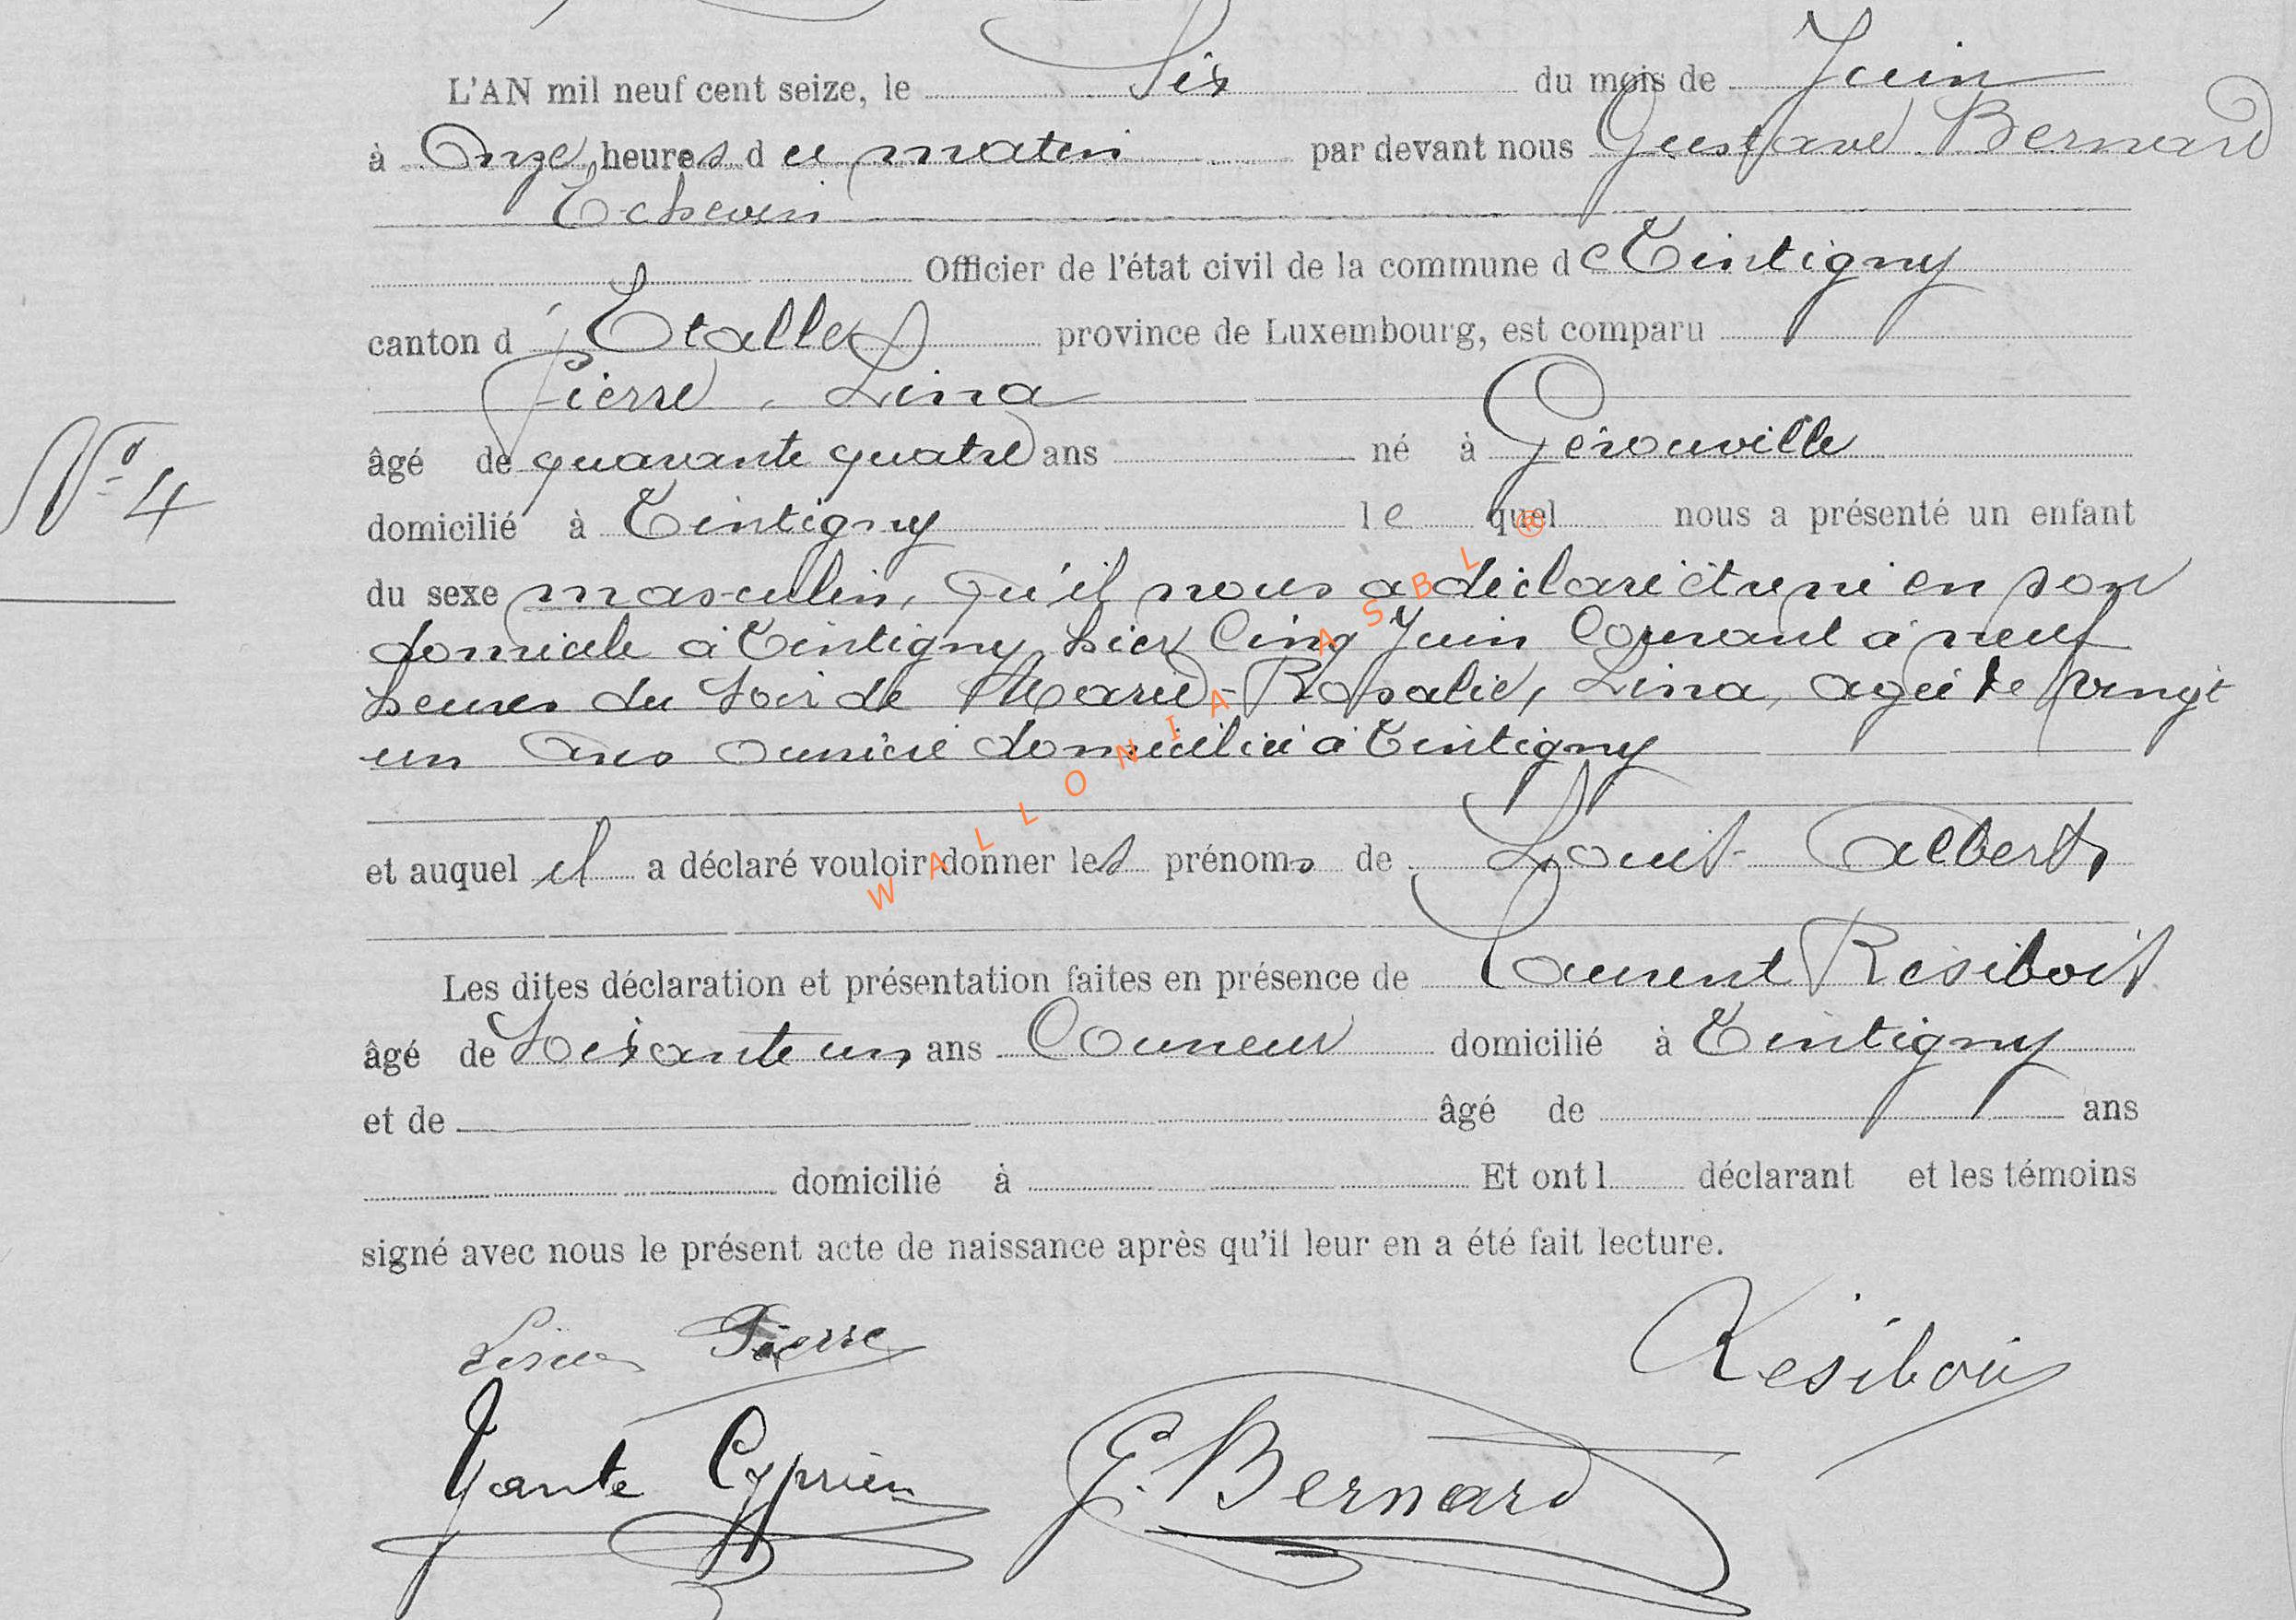 L'AN mil neuf cent seize, le Six du mois de Juin
à Onze heures du matin par devant nous Gustave Bernard
Echevin
Officier de l'état civil de la commune de Tintigny
canton d'Etalle province de Luxembourg, est comparu
Pierre, Lina
âgé de quarante quatre ans né à Gérouville
N° 4
domicilié à Tintigny lequel nous a présenté un enfant
du sexe masculin, qu'il nous a déclaré être né en son
domicile à Tintigny hier Cinq Juin Courant à neuf
heures du soir de Marie-Rosalie, Lina, agée de vingt
un ans domiciliée à Tintigny
et auquel il a déclaré vouloir donner les prénoms de Louis Albert,
Les dites déclaration et présentation faites en présence de Laurent Résibois
âgé de Soixante un ans domicilié à Tintigny
et de âgé de ans
domicilié à Et ont l déclarant et les témoins
signé avec nous le présent acte de naissance après qu'il leur en a été fait lecture.
Lina Pierre
Résibois
Yante Cyprien G. Bernard
WALLONIA ASBL ®